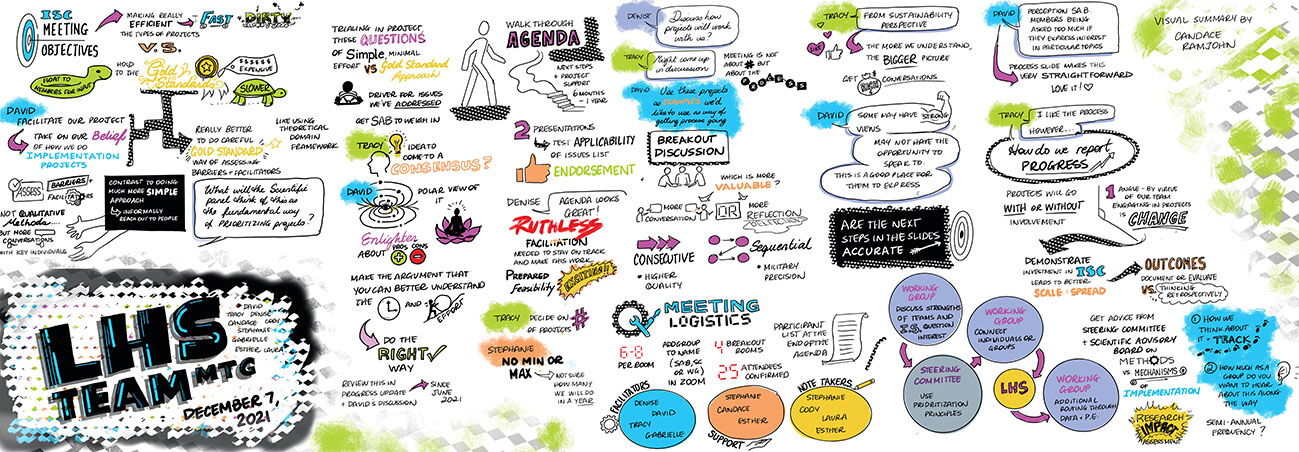 ISC
MEETING
OBJECTIVES
MAKING REALLY
EFFICIENT
THE TYPES OF PROJECTS
FAST + DIRTY
V.S.
FLOAT TO
MEMBERS FOR INPUT
HOLD
TO THE
Gold
Standard
EXPENSIVE
SLOWER
DAVID
FACILITATE OUR PROJECT
TAKE ON OUR Belief
OF HOW WE DO
IMPLEMENTATION
PROJECTS
REALLY BETTER
TO DO CAREFUL
GOLD STANDARD
WAY OF ASSESSING
BARRIERS + FACILITATORS
LIKE USING
THEORETICAL
DOMAIN
FRAMEWORK
ASSESS
BARRIERS +
FACILITATORS
NOT QUALITATIVE
Methods...
BUT MORE
CONVERSATIONS
WITH KEY INDIVIDUALS
CONTRAST TO DOING
MUCH MORE SIMPLE
APPROACH
INFORMALLY
REACH OUT TO PEOPLE
What will the Scientific
panel think of this as
the fundamental way
of PRIORITIZING projects?
LHS
TEAM MTG
DECEMBER 7,
2021
DAVID
TRACY DENISE
CANDACE CODY
STEPHANIE
GABRIELLE
ESTHER LAURA
TRIALING IN PROJECT
THESE QUESTIONS
OF Simple, MINIMAL
EFFORT VS Gold Standard
Approach
DRIVER FOR ISSUES
WE'VE ADDRESSED
GET SAB TO WEIGH IN
TRACY
IDEA TO
COME TO A
CONSENSUS?
DAVID
POLAR VIEW OF
IT
Enlighten
ABOUT
PROS CONS
MAKE THE ARGUMENT THAT
YOU CAN BETTER UNDERSTAND
THE
AND
EFFORT
DO THE
RIGHT
WAY
REVIEW THIS IN
PROGRESS UPDATE
+ DAVID'S DISCUSSION
SINCE
JUNE
2021
WALK THROUGH
AGENDA
NEXT STEPS
+ PROJECT
SUPPORT
6 MONTHS
- 1 YEAR
2 PRESENTATIONS
TEST APPLICABILITY
OF ISSUES LIST
ENDORSEMENT
DENISE
AGENDA LOOKS
GREAT!
RUTHLESS
FACILITATION
NEEDED TO STAY ON TRACK
AND MAKE THIS WORK
Prepared
Feasibility
EXCITING!!
TRACY
DECIDE ON #
OF PROJECTS
STEPHANIE
NO MIN OR
MAX
NOT SURE
HOW MANY
WE WILL DO
IN A YEAR
DENISE
Discuss how
projects will work
with us?
TRACY
Might come up
in discussion
MEETING IS NOT
ABOUT # BUT
ABOUT THE
PROCESS
DAVID
Use these projects
as EXAMPLES we'd
like to use as way of
getting process going
BREAKOUT
DISCUSSION
WHICH IS MORE
VALUABLE?
MORE
CONVERSATION
OR
MORE
REFLECTION
CONSECUTIVE
• HIGHER
QUALITY
Sequential
• MILITARY
PRECISION
MEETING
LOGISTICS
6-8
PER ROOM
ADD GROUP
TO NAME
(SAB, SC
OR WG)
IN ZOOM
4 BREAKOUT
ROOMS
25 ATTENDEES
CONFIRMED
PARTICIPANT
LIST AT THE
END OF THE
AGENDA
FACILITATORS
DENISE
DAVID
TRACY
GABRIELLE
STEPHANIE
CANDACE
ESTHER
SUPPORT
NOTE TAKERS
STEPHANIE
CODY
LAURA
ESTHER
TRACY
FROM SUSTAINABILITY
PERSPECTIVE
THE MORE WE UNDERSTAND,
THE BIGGER PICTURE
GET
CONVERSATIONS
DAVID
SOME MAY HAVE STRONG
VIEWS
MAY NOT HAVE THE
OPPORTUNITY TO
SPEAK TO.
THIS IS A GOOD PLACE FOR
THEM TO EXPRESS
ARE THE NEXT
STEPS IN THE SLIDES
ACCURATE
WORKING
GROUP
DISCUSS STRENGTHS
OF TEAMS AND
I.S. QUESTION
INTEREST
STEERING
COMMITTEE
USE
PRIORITIZATION
PRINCIPLES
WORKING
GROUP
CONNECT
INDIVIDUALS OR
GROUPS
LHS
WORKING
GROUP
ADDITIONAL
ROUTING THROUGH
DATA + P.E.
DAVID
PERCEPTION SAB
MEMBERS BEING
ASKED TOO MUCH IF
THEY EXPRESS INTEREST
IN PARTICULAR TOPICS
PROCESS SLIDE MAKES THIS
VERY STRAIGHTFORWARD
LOVE IT!
TRACY
I LIKE THE PROCESS
HOWEVER...
How do we report
PROGRESS
PROJECTS WILL GO
WITH OR WITHOUT
INVOLVEMENT
1 ANGLE - BY VIRTUE
OF OUR TEAM
ENGAGING IN PROJECTS
CHANGE
DEMONSTRATE
INVESTMENT IN ISC
LEADS TO BETTER
SCALE + SPREAD
OUTCOMES
DOCUMENT OR EVALUATE
VS. THINKING
RETROSPECTIVELY
GET ADVICE FROM
STEERING COMMITTEE
+ SCIENTIFIC ADVISORY
BOARD ON
METHODS
VS. MECHANISMS
OF IMPLEMENTATION
RESEARCH
IMPACT
ASSESSMENT
① HOW WE
THINK ABOUT
IT + TRACK
② HOW MUCH AS A
GROUP DO YOU
WANT TO HEAR
ABOUT THIS ALONG
THE WAY
SEMI-ANNUAL
FREQUENCY?
VISUAL SUMMARY BY
CANDACE
RAMJOHN